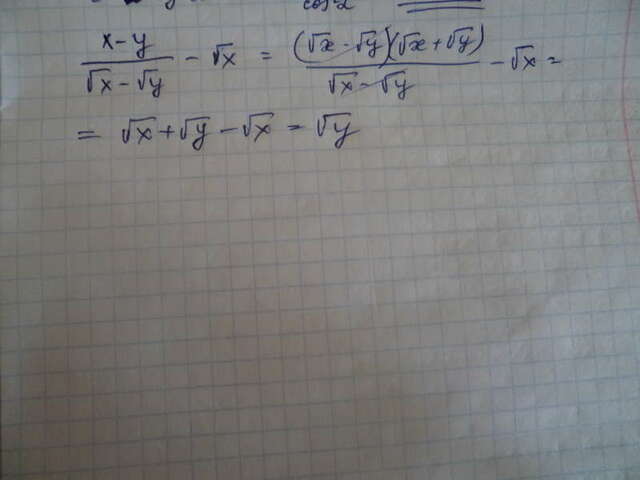 cos 2
(x-y)/(√x - √y) - √x = ((√x - √y)(√x + √y))/(√x - √y) - √x =
= √x + √y - √x = √y